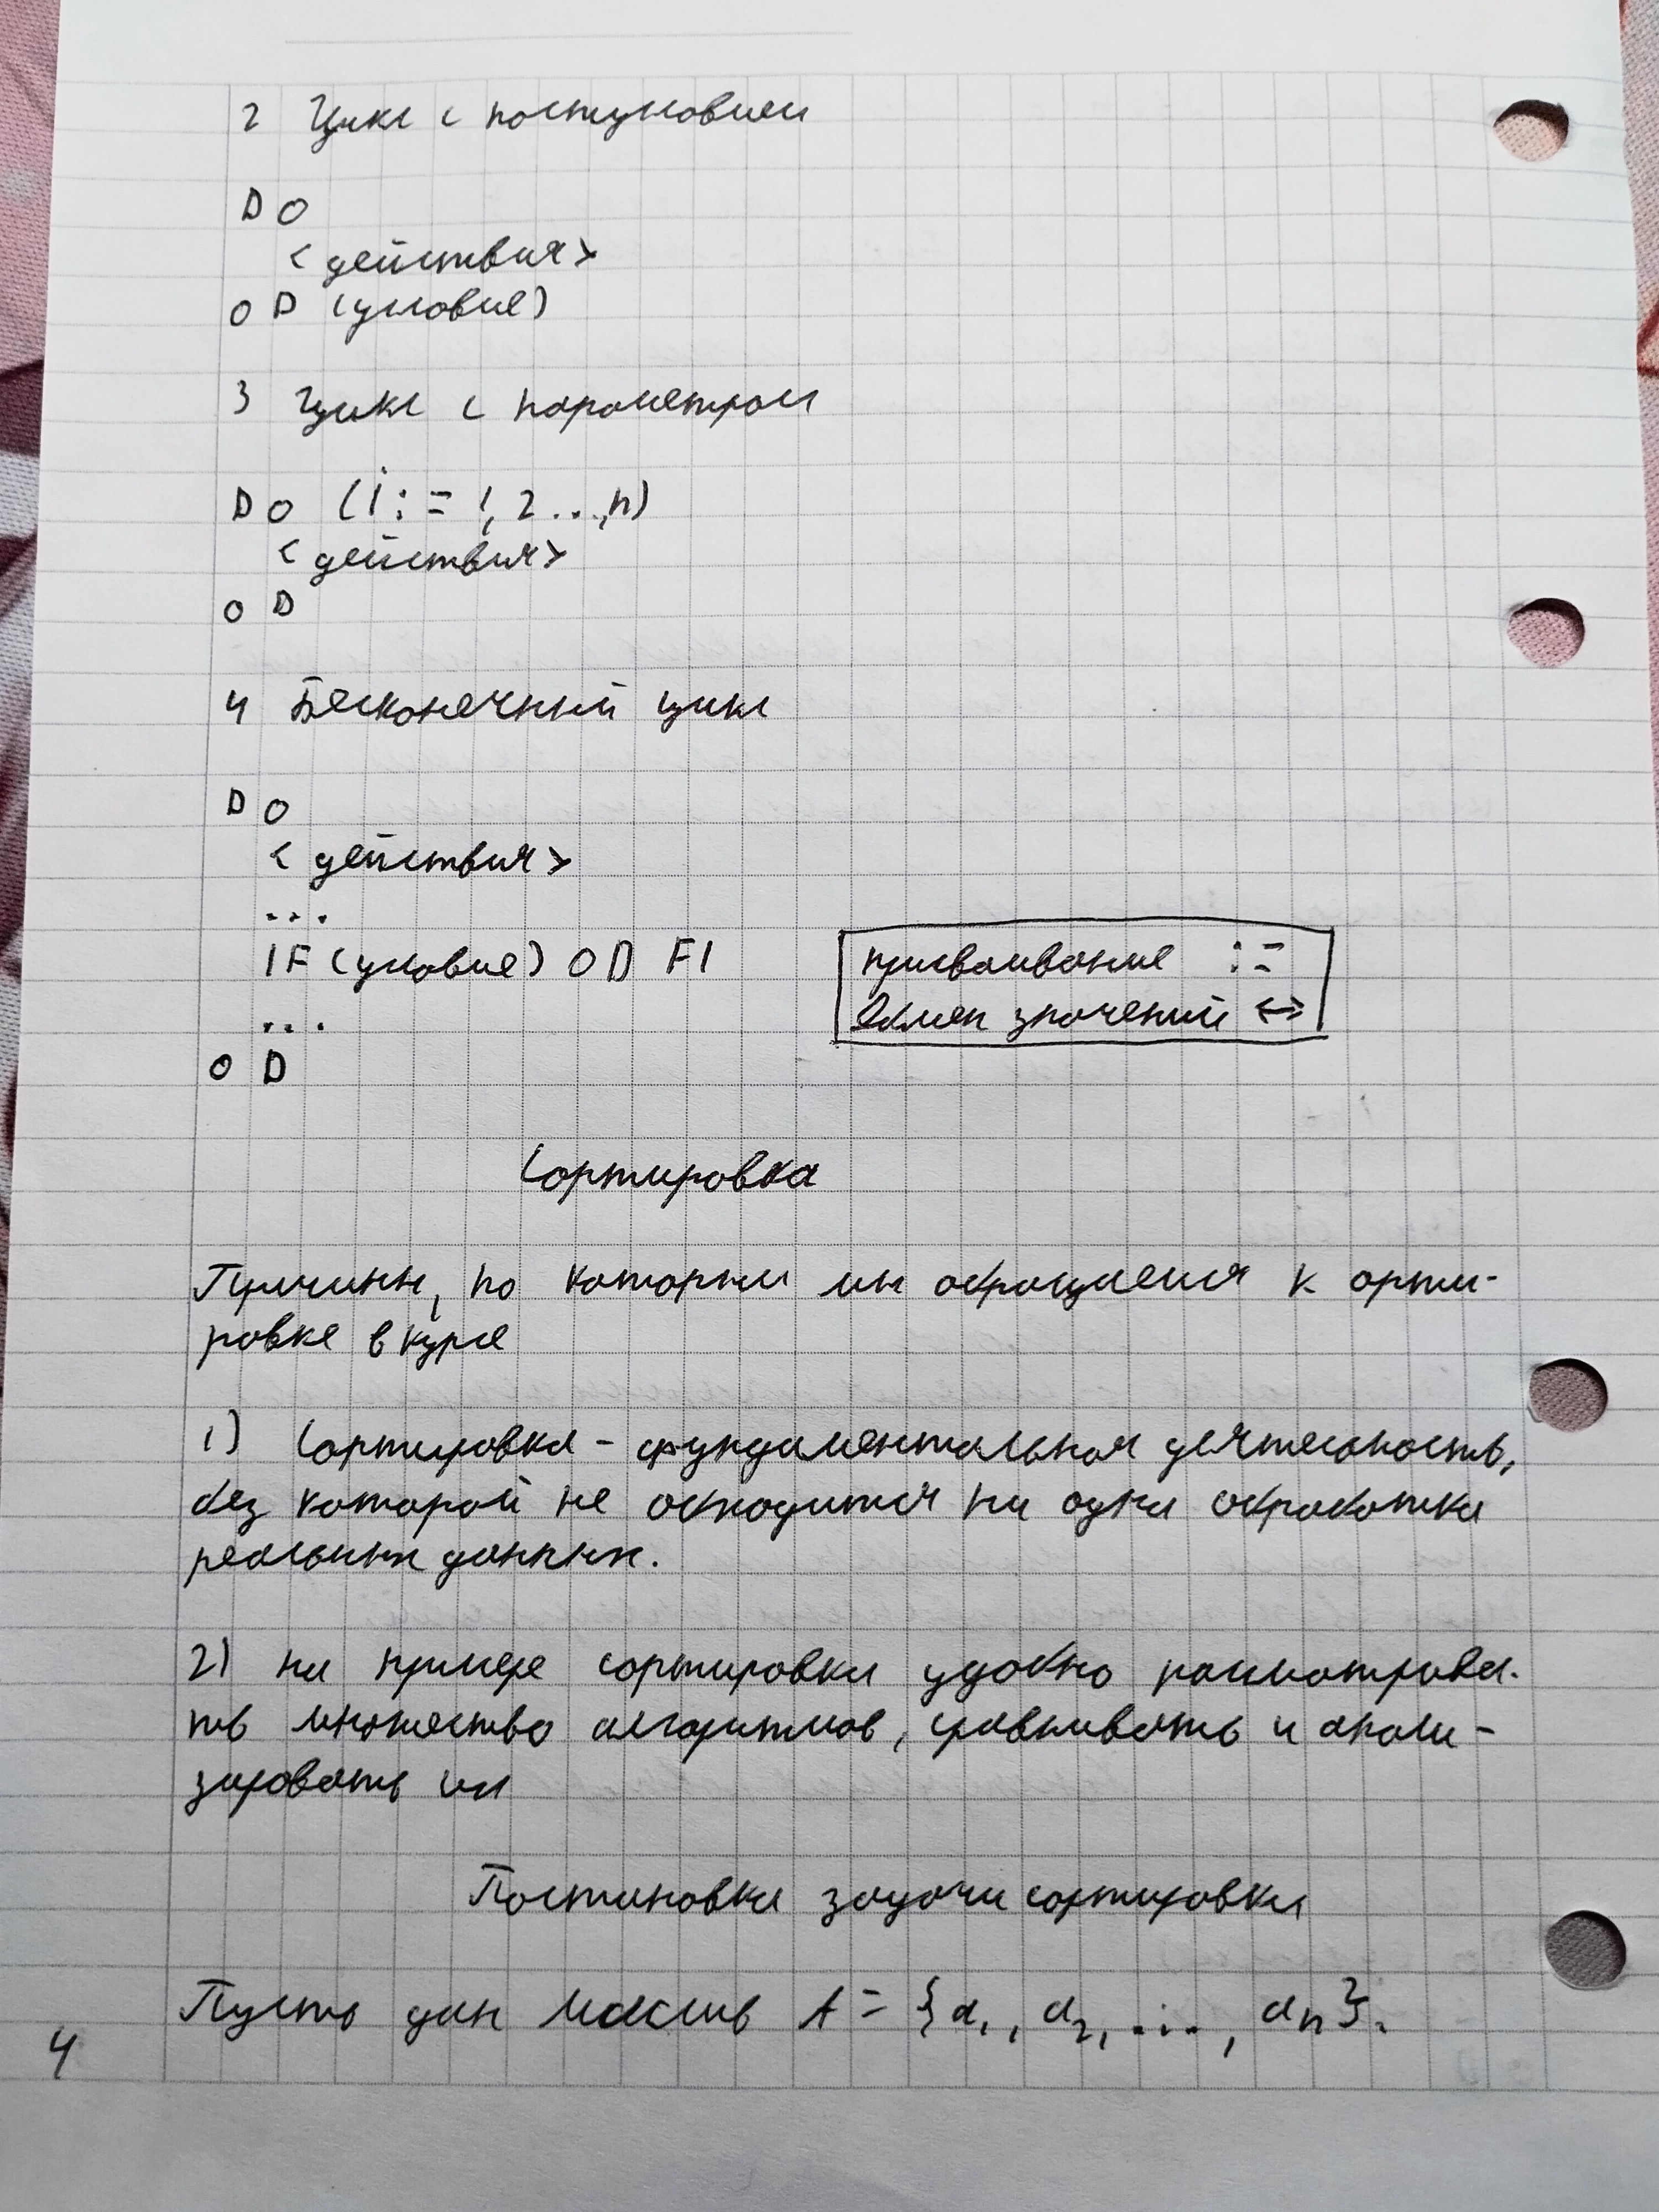 2 Цикл с постусловием
DO
<действия>
OD (условие)
3 Цикл с параметром
DO (i := 1, 2 ..., n)
<действия>
OD
4 Бесконечный цикл
DO
<действия>
...
IF (условие) OD FI
присваивание :=
обмен значений <->
...
OD
Сортировка
Причины, по которым мы обращаемся к орти-
ровке в курсе
1) Сортировка - фундаментальная деятельность,
без которой не обходится ни одна обработка
реальных данных.
2) на примере сортировки удобно рассматрива-
ть множество алгоритмов, сравнивать и анали-
зировать их
Постановка задачи сортировки
Пусть дан массив A = {a₁, a₂, ..., aₙ}.
4